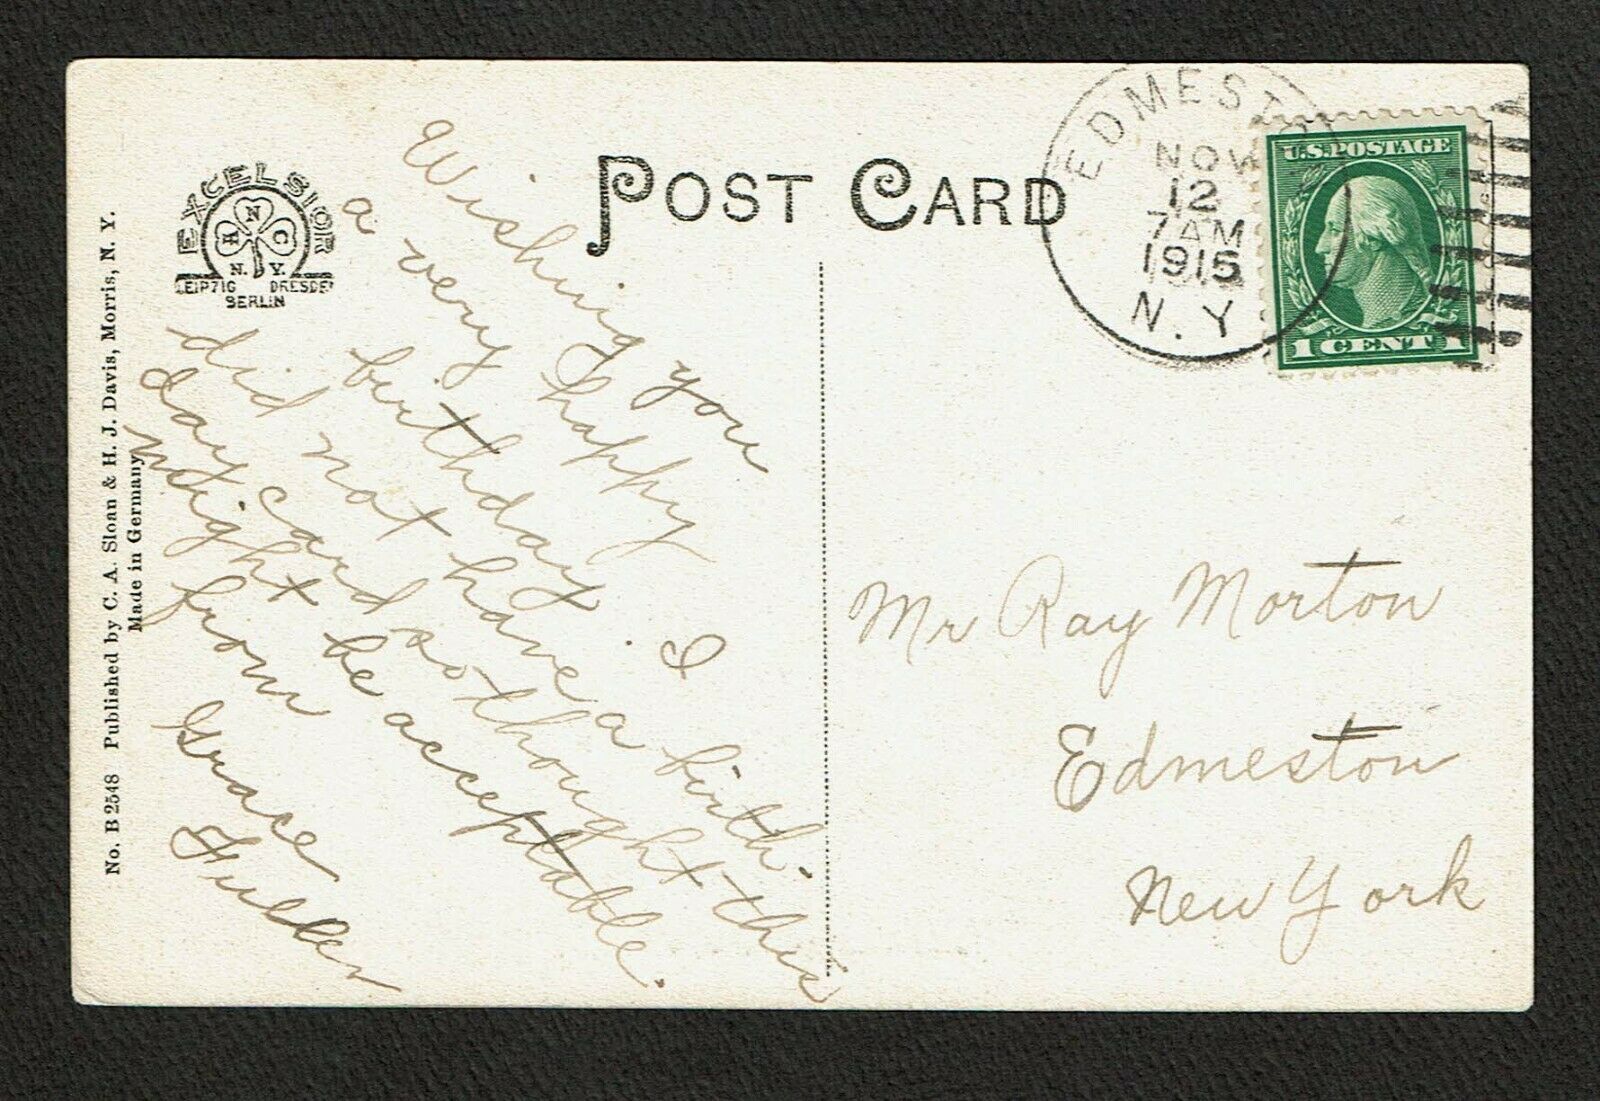 No. B 2548 Published by C. A. Sloan & H. J. Davis, Morris, N. Y.
Made in Germany
EXCELSIOR
N
H C
N. Y.
LEIPZIG DRESDEN
BERLIN
POST CARD
Wishing you
a very happy
birthday. I
did not have a birth-
day card so thought this
might be acceptable.
from
Grace
Fuller
EDMESTON
NOV
12
7 AM
1915
N. Y.
U.S. POSTAGE
1 CENT 1
Mr Ray Morton
Edmeston
New York